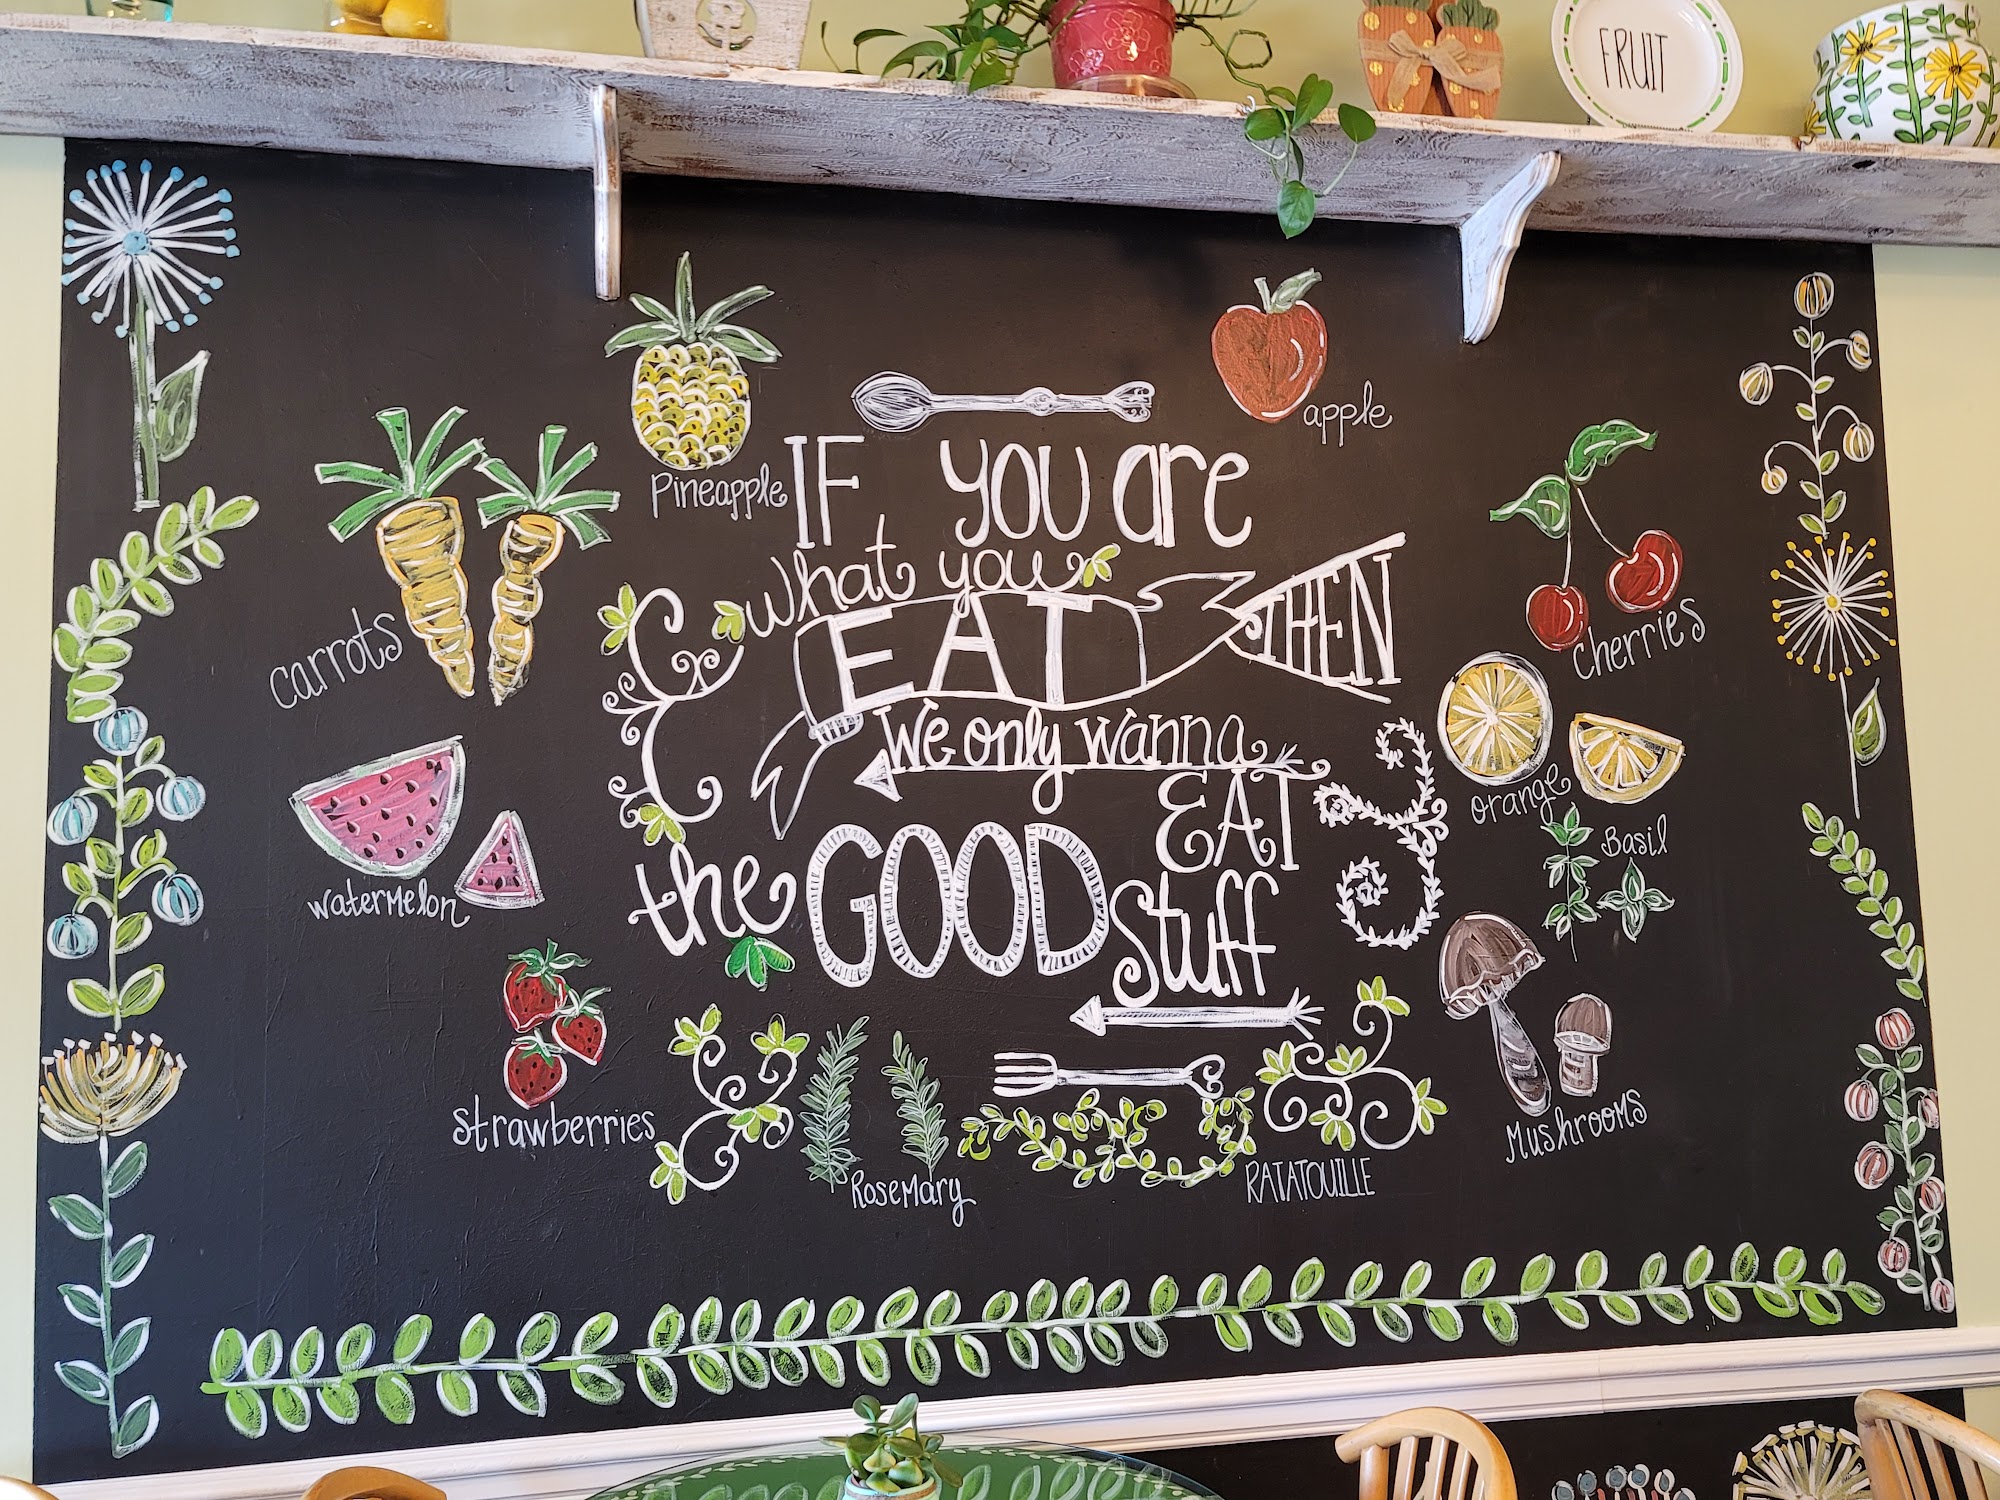 FRUIT
apple
Pineapple
IF you are
what you
EAT THEN
carrots
cherries
We only wanna
EAT
orange
Basil
the GOOD stuff
watermelon
strawberries
Mushrooms
Rosemary
RATATOUILLE